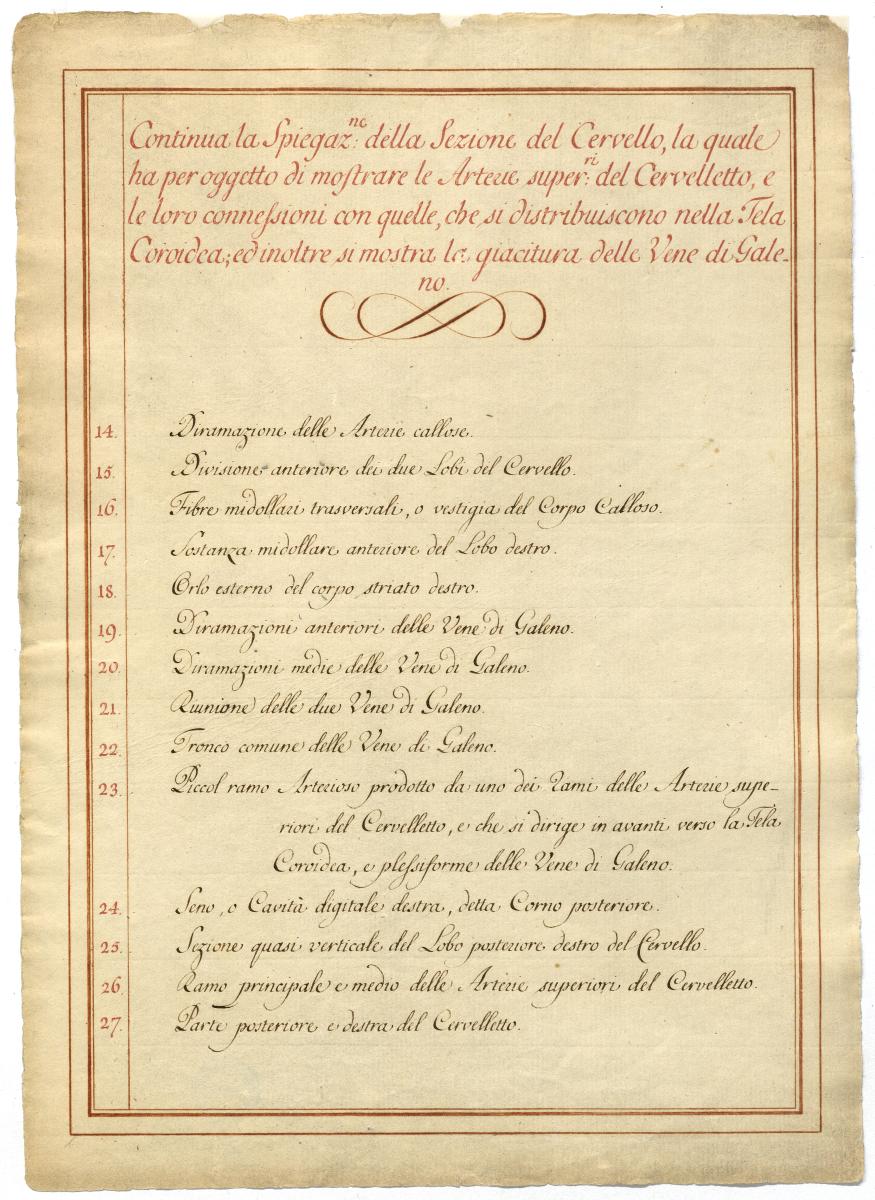 Continua la Spiegaz.ne della Sezione del Cervello, la quale
ha per oggetto di moſtrare le Arterie super.ri del Cervelletto, e
le loro conneſsioni con quelle, che si distribuiscono nella Tela
Coroidea; ed inoltre si mostra la giacitura delle Vene di Gale-
no.
14. Diramazione delle Arterie callose.
15. Divisione anteriore dei due Lobi del Cervello.
16. Fibre midollari trasversali, o vestigia del Corpo Calloso.
17. Sostanza midollare anteriore del Lobo destro.
18. Orlo esterno del corpo striato destro.
19. Diramazioni anteriori delle Vene di Galeno.
20. Diramazioni medie delle Vene di Galeno.
21. Riunione delle due Vene di Galeno.
22. Tronco comune delle Vene di Galeno.
23. Piccol ramo Arterioso prodotto da uno dei Rami delle Arterie supe-
riori del Cervelletto, e che si dirige in avanti verso la Tela
Coroidea, e pleſsiforme delle Vene di Galeno.
24. Seno, o Cavità digitale destra, detta Corno posteriore.
25. Sezione quasi verticale del Lobo posteriore destro del Cervello.
26. Ramo principale e medio delle Arterie superiori del Cervelletto.
27. Parte posteriore e destra del Cervelletto.